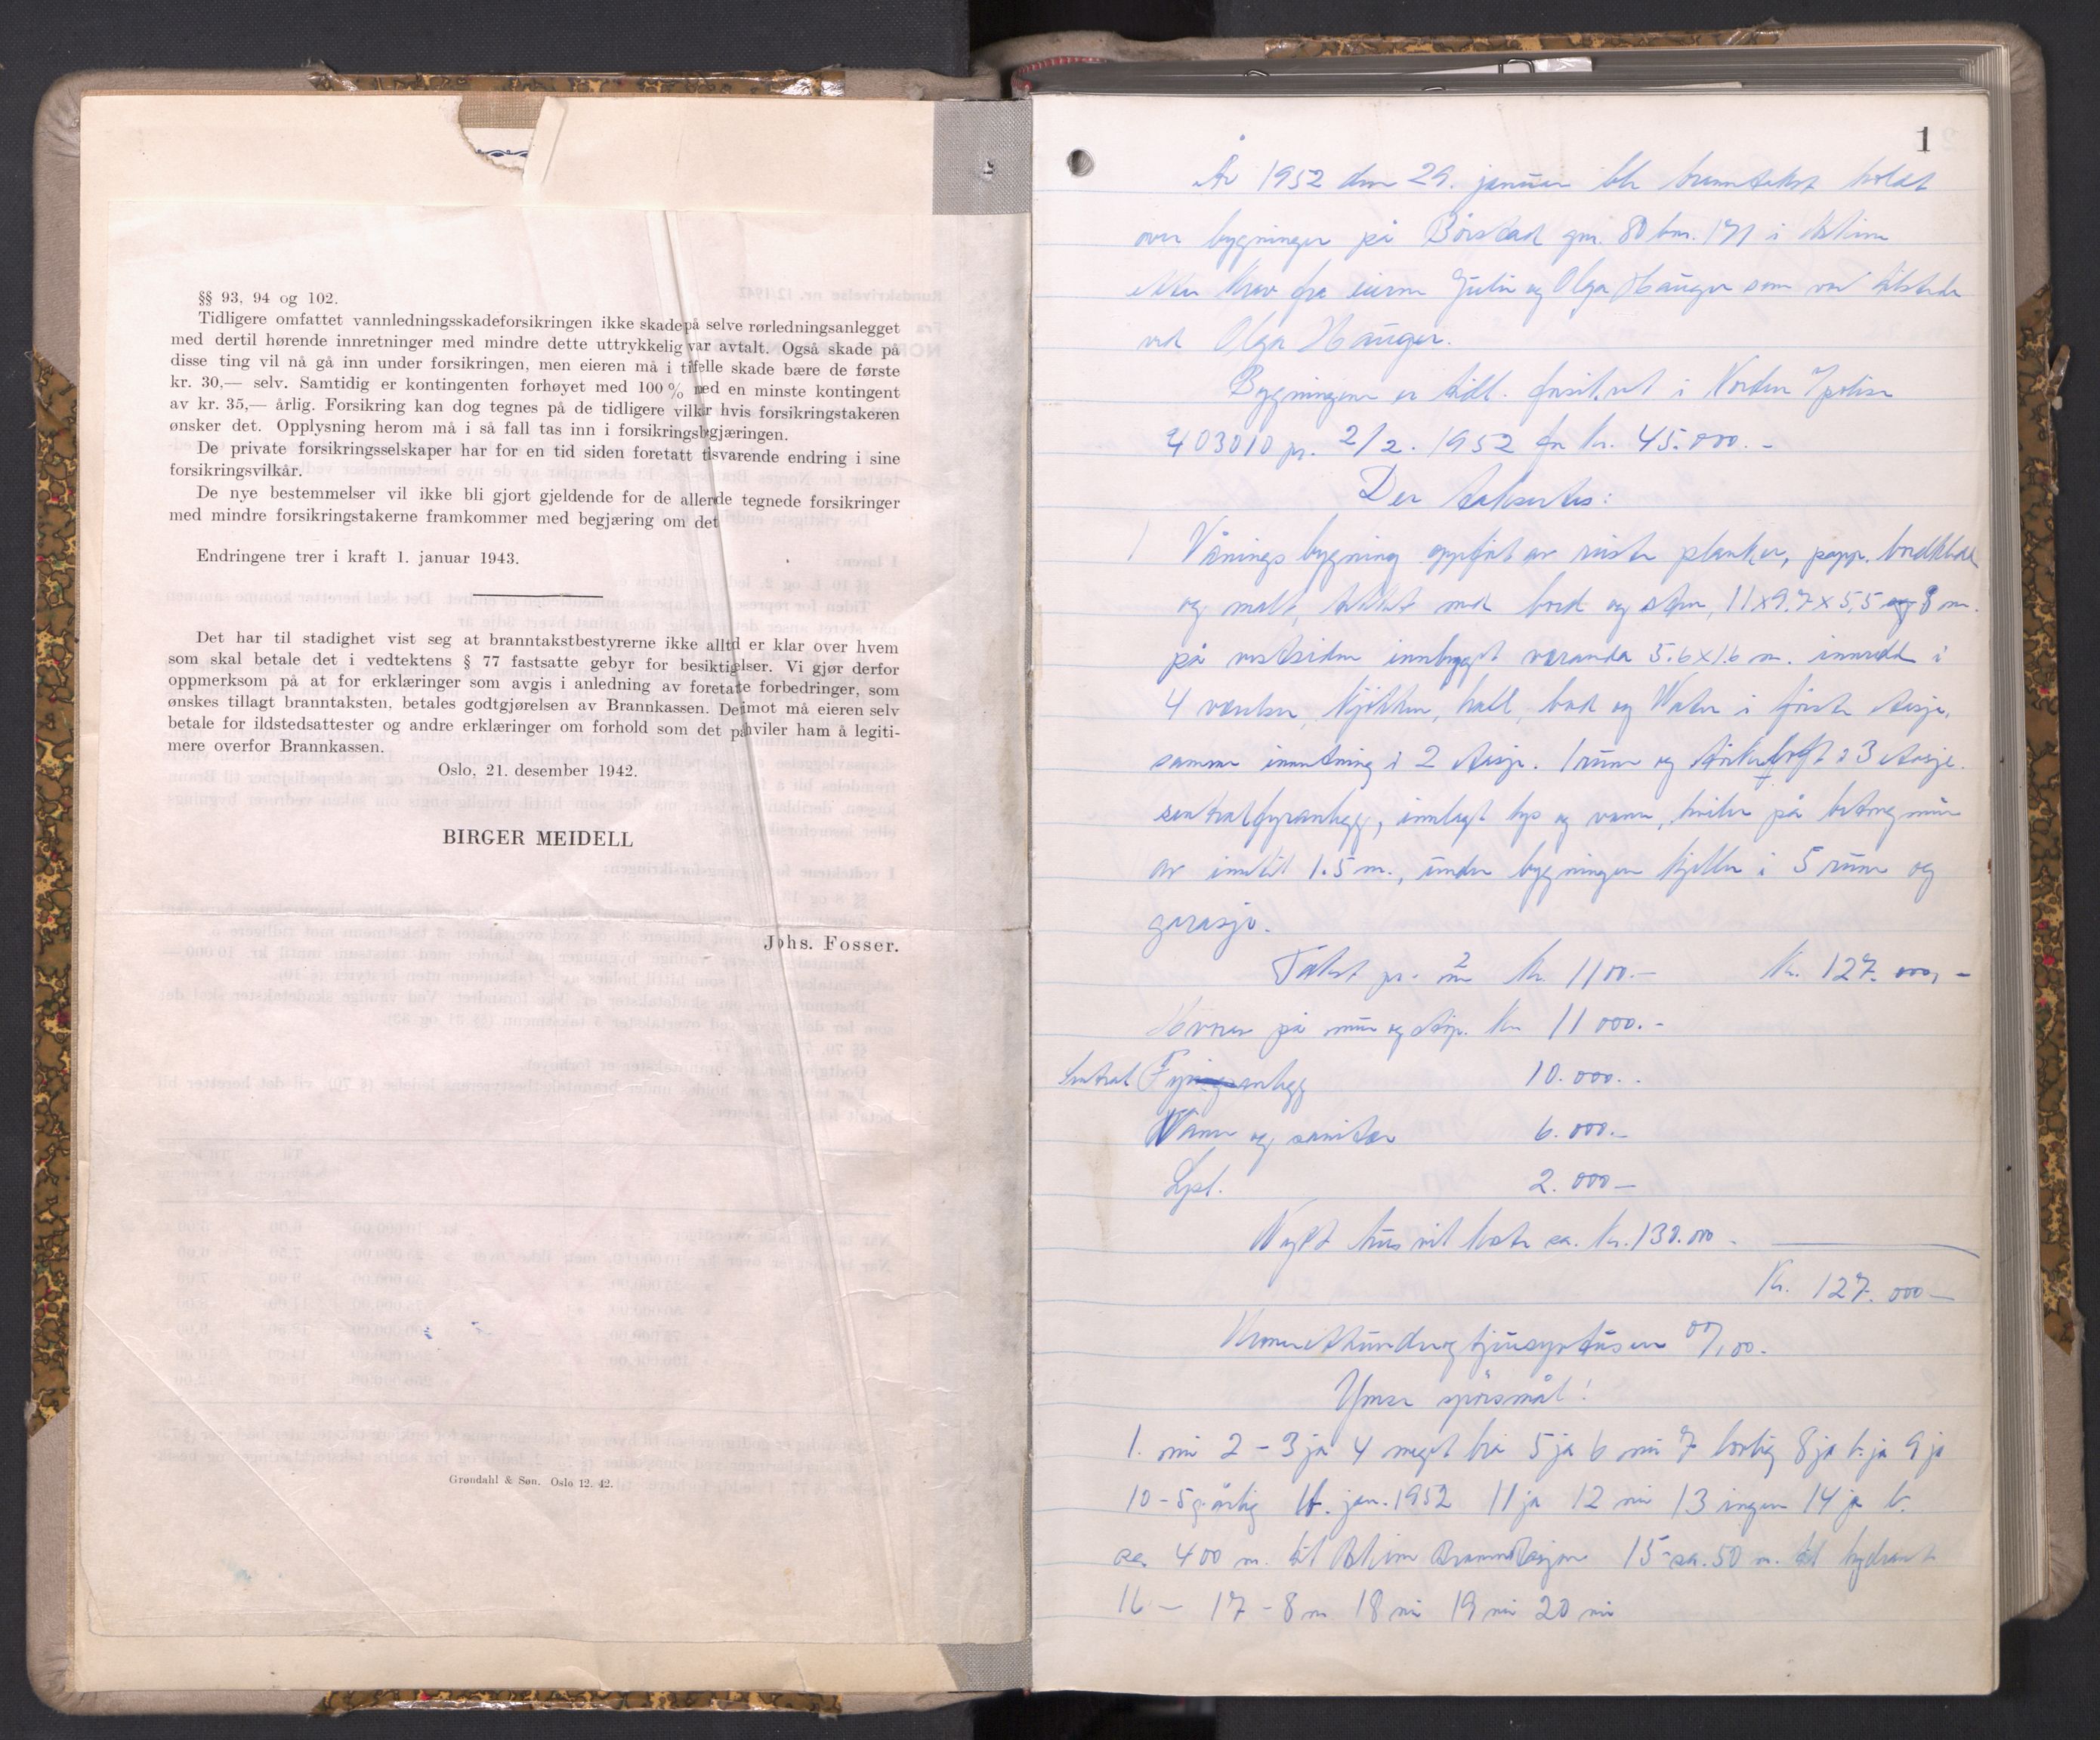 §§ 93, 94 og 102.
Tidligere omfattet vannledningsskadeforsikringen ikke skade på selve rørledningsanlegget
med dertil hørende innretninger med mindre dette uttrykkelig var avtalt. Også skade på
disse ting vil nå gå inn under forsikringen, men eieren må i tilfelle skade bære de første
kr. 30,— selv. Samtidig er kontingenten forhøyet med 100 % med en minste kontingent
av kr. 35,— årlig. Forsikring kan dog tegnes på de tidligere vilkår hvis forsikringstakeren
ønsker det. Opplysning herom må i så fall tas inn i forsikringsbegjæringen.
De private forsikringsselskaper har for en tid siden foretatt tilsvarende endring i sine
forsikringsvilkår.
De nye bestemmelser vil ikke bli gjort gjeldende for de allerede tegnede forsikringer
med mindre forsikringstakerne framkommer med begjæring om det
Endringene trer i kraft 1. januar 1943.
Det har til stadighet vist seg at branntakstbestyrerne ikke alltd er klar over hvem
som skal betale det i vedtektens § 77 fastsatte gebyr for besiktigelser. Vi gjør derfor
oppmerksom på at for erklæringer som avgis i anledning av foretatte forbedringer, som
ønskes tillagt branntaksten, betales godtgjørelsen av Brannkassen. Derimot må eieren selv
betale for ildstedsattester og andre erklæringer om forhold som det påhviler ham å legiti-
mere overfor Brannkassen.
Oslo, 21. desember 1942.
BIRGER MEIDELL
Johs. Fosser.
Grøndahl & Søn. Oslo 12. 42.
1
År 1952 den 29. januar ble branntakst holdt
over bygninger på Børstad gnr. 80 bnr. 171 i Askim
etter krav fra eierne Julie og Olga Hauger som var tilstede
ved Olga Hauger.
Bygningene er tidl. forsikret i Norden % polise
403010 pr. 2/2. 1952 for kr. 45.000.-
Der takseres:
1 Vånings bygning oppført av reiste planker, papp. bordkledd
og malt, tekket med bord og sten, 11x9.7x5,5 og 8 m.
på vestsiden innbygget veranda 5.6x1.6 m. innredd i
4 værelser, kjøkken, hall, bad og Water i første etasje,
samme innretning i 2 etasje. 1 rum og tørkeloft i 3 etasje.
sentralfyranlegg, innlagt lys og vann, hviler på betongmur
av inntil 1.5 m., under bygningen kjeller i 5 rum og
garasje.
Takst pr. m2 kr. 1100.- Kr. 127.000,-
Hvorav på mur og pip. kr 11 000.-
Sentral Fyranlegg 10.000..
Vann og sanitær 6.000.-
Lysl. 2.000-
Nytt hus vil koste ca. kr. 130.000-
Kr. 127.000-
Kroneretthundreogtjuesyvtusen 00/00.
Ymse spørsmål!
1. nei 2 - 3 ja 4 meget bra 5 ja 6 nei 7 bolig 8 ja b. ja 9 ja
10 - 5 g. årlig 16. jan. 1952 11 ja 12 nei 13 ingen 14 ja b.
ca. 400 m. til Askim Brannstasjon 15 - ca. 50 m. til hydrant
16 — 17 - 8 m 18 nei 19 nei 20 nei